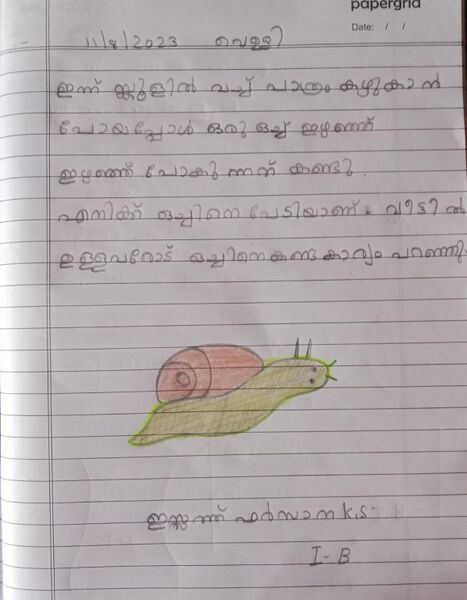 papergrid
Date: / /
11/8/2023 വെള്ളി
ഇന്ന് സ്കൂളിൽ വച്ച് പാത്രം കഴുകാൻ
പോയപ്പോൾ ഒരു ഒച്ച് ഇഴഞ്ഞ്
ഇഴഞ്ഞ് പോകുന്നത് കണ്ടു.
എനിക്ക് ഒച്ചിനെ പേടിയാണ്. വീട്ടിൽ
ഉള്ളവരോട് ഒച്ചിനെ കണ്ട കാര്യം പറഞ്ഞു.
ഫർസാന K.S
I-B